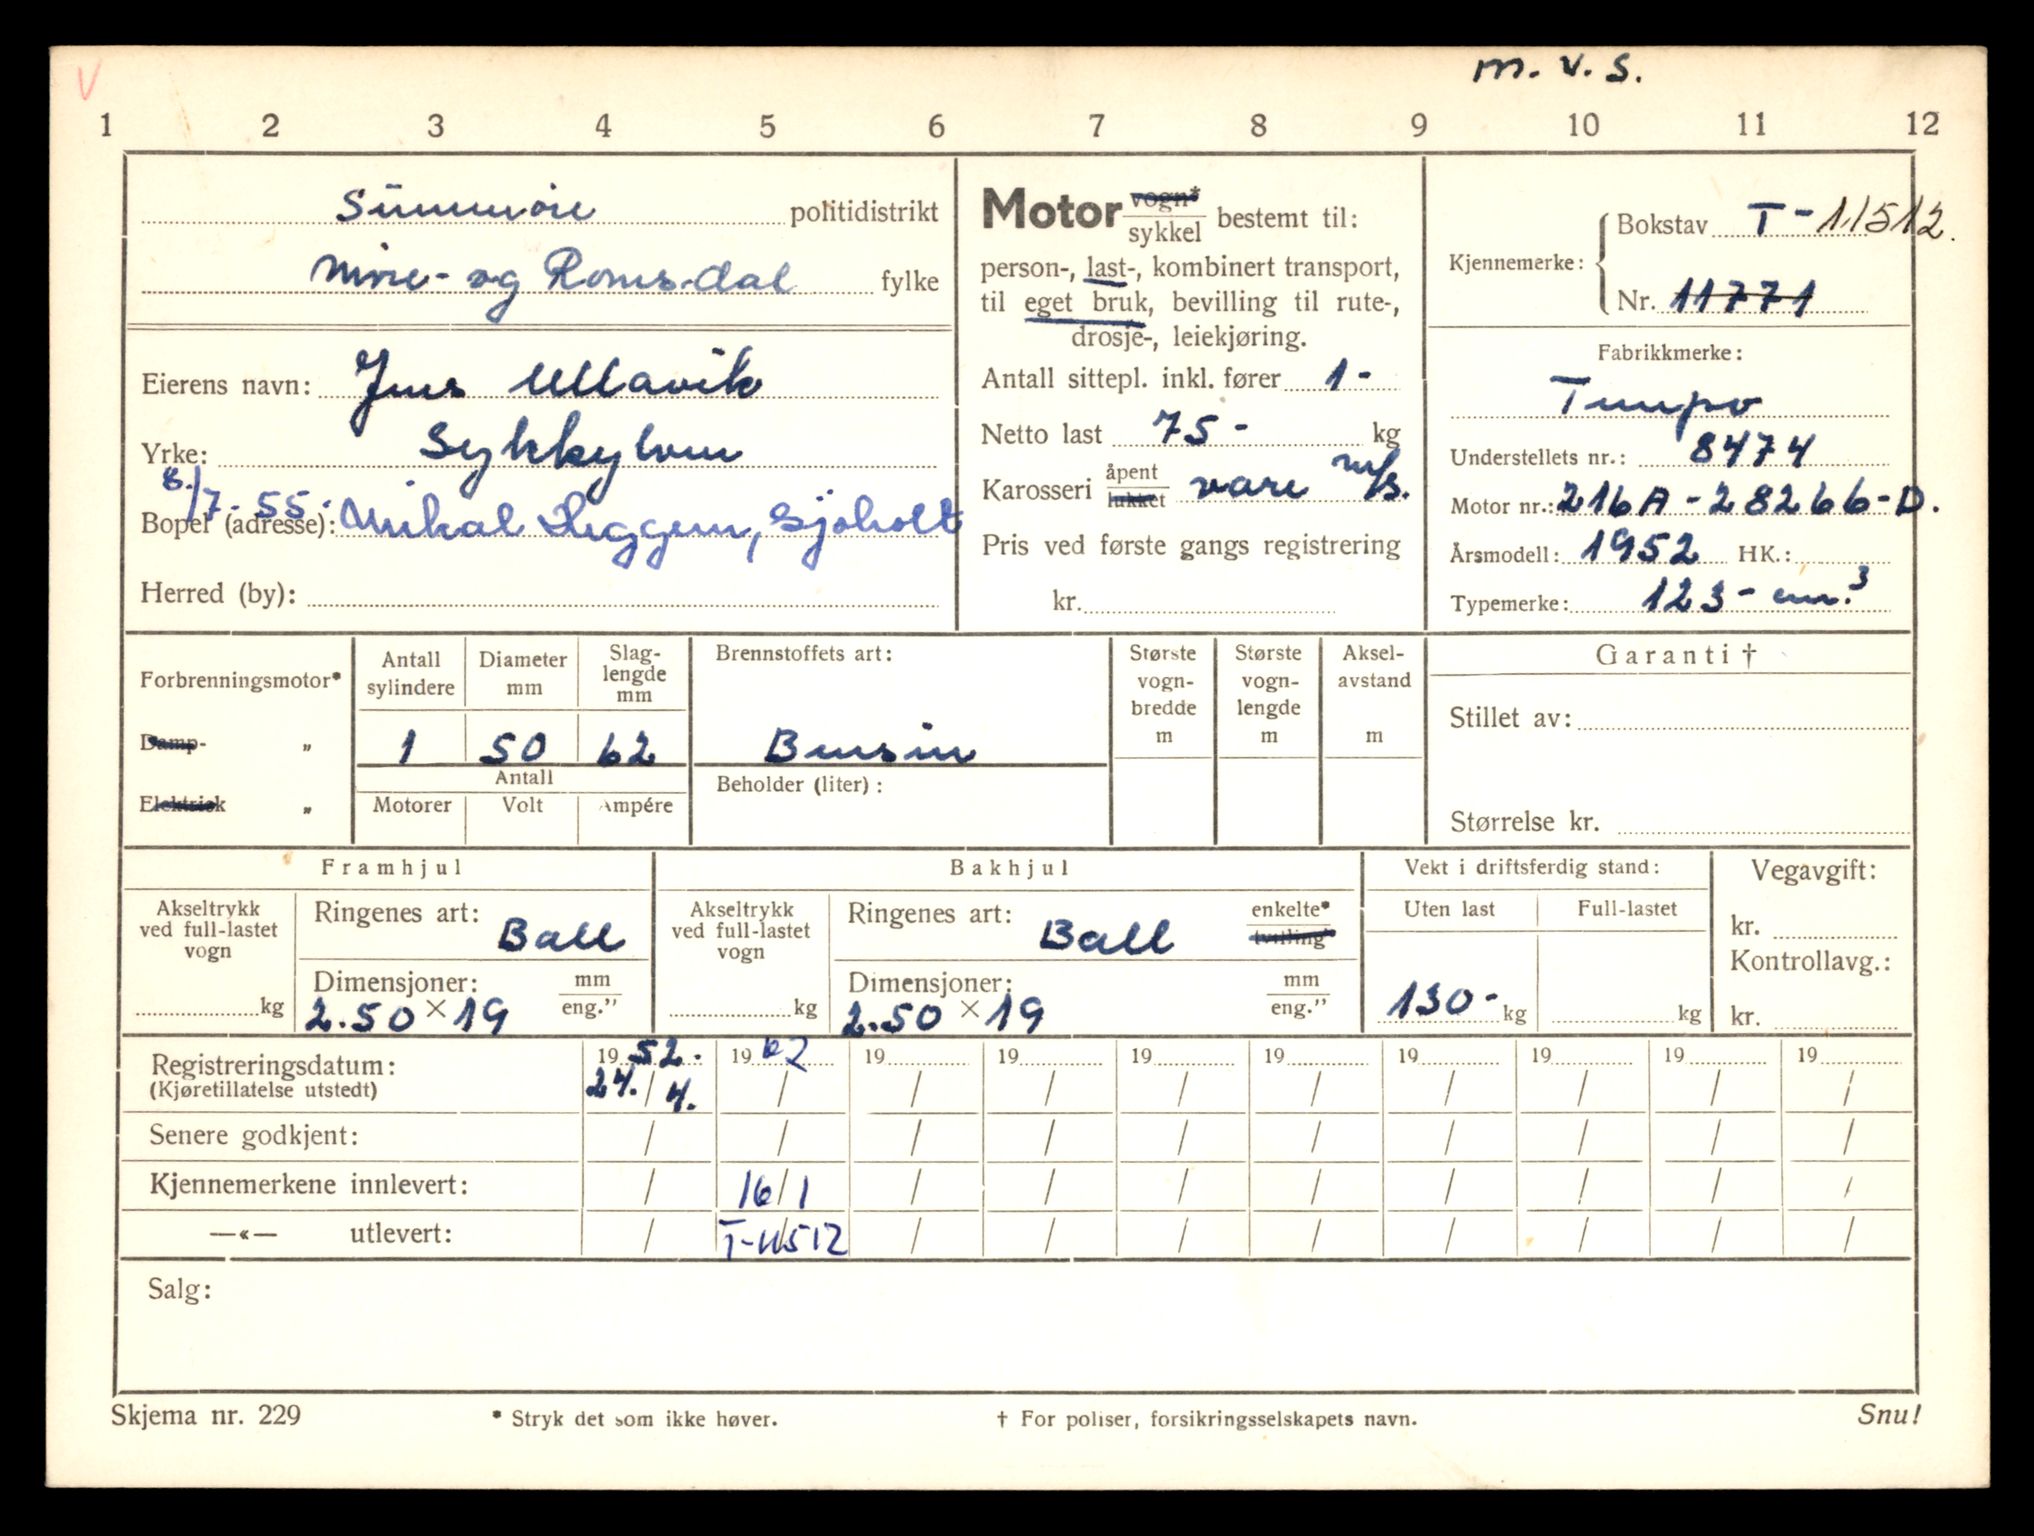 V
m. v. s.
1 2 3 4 5 6 7 8 9 10 11 12
Sunnmøre politidistrikt
Møre- og Romsdal fylke
Eierens navn: Jens Ullavik
Yrke: Sykkylven
8./7-55.
Bopel (adresse): Mikal Heggen, Sjøholt
Herred (by):
Motor vogn*
sykkel bestemt til:
person-, last-, kombinert transport,
til eget bruk, bevilling til rute-,
drosje-, leiekjøring.
Antall sittepl. inkl. fører 1 -
Netto last 75 - kg
Karosseri åpent
lukket vare m/s.
Pris ved første gangs registrering
kr.
Kjennemerke: Bokstav T - 11512.
Nr. 11771
Fabrikkmerke:
Tempo
Understellets nr.: 8474
Motor nr.: 216A - 28266-D.
Årsmodell: 1952 HK.:
Typemerke: 123 - cm.³
Forbrenningsmotor*
Damp- „
Elektrisk „
Antall sylindere Diameter mm Slaglengde mm
1 50 62
Antall
Motorer Volt Ampére
Brennstoffets art:
Bensin
Beholder (liter):
Største vognbredde m
Største vognlengde m
Akselavstand m
Garanti †
Stillet av:
Størrelse kr.
Framhjul
Akseltrykk ved full-lastet vogn
kg
Ringenes art: Ball
Dimensjoner: mm
2.50 × 19 eng."
Bakhjul
Akseltrykk ved full-lastet vogn
kg
Ringenes art: Ball enkelte*
tvilling*
Dimensjoner: mm
2.50 × 19 eng."
Vekt i driftsferdig stand:
Uten last Full-lastet
130 - kg kg
Vegavgift:
kr.
Kontrollavg.:
kr.
Registreringsdatum: 19 52. 19 62 19 19 19 19 19 19 19 19
(Kjøretillatelse utstedt) 24. / 4. / / / / / / / / /
Senere godkjent: / / / / / / / / / /
Kjennemerkene innlevert: / 16/1 / / / / / / / /
—«— utlevert: / T-11512 / / / / / / / /
Salg:
Skjema nr. 229 * Stryk det som ikke høver. † For poliser, forsikringsselskapets navn. Snu!